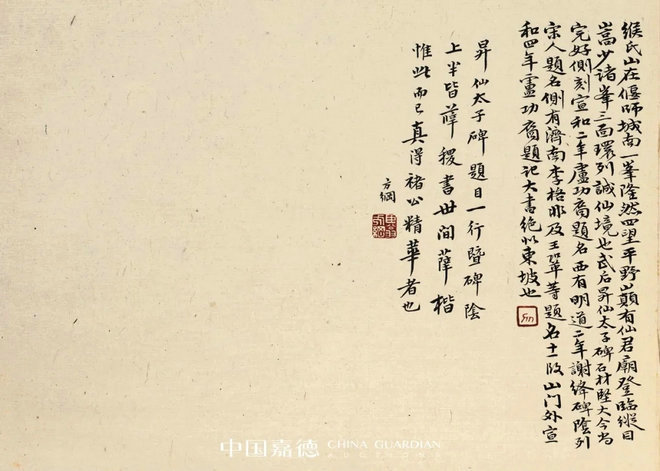 缑氏山在偃师城南一峯隆然四望平野山巅有仙君廟登臨縱目
嵩少诸峯三面環列誠仙境也武后昇仙太子碑石材堅大今尚
完好側刻宣和二年盧功裔題名西有明道二年謝绛碑陰列
宋人題名側有濟南李格非及王鞏等題名十二段山门外宣
和四年盧功裔題记大書絶似東坡也
昇仙太子碑題目一行暨碑陰
上半皆薛稷書世间薛楷
惟此而已真得褚公精華者也
方綱
中国嘉德 CHINA GUARDIAN
AUCTIONS